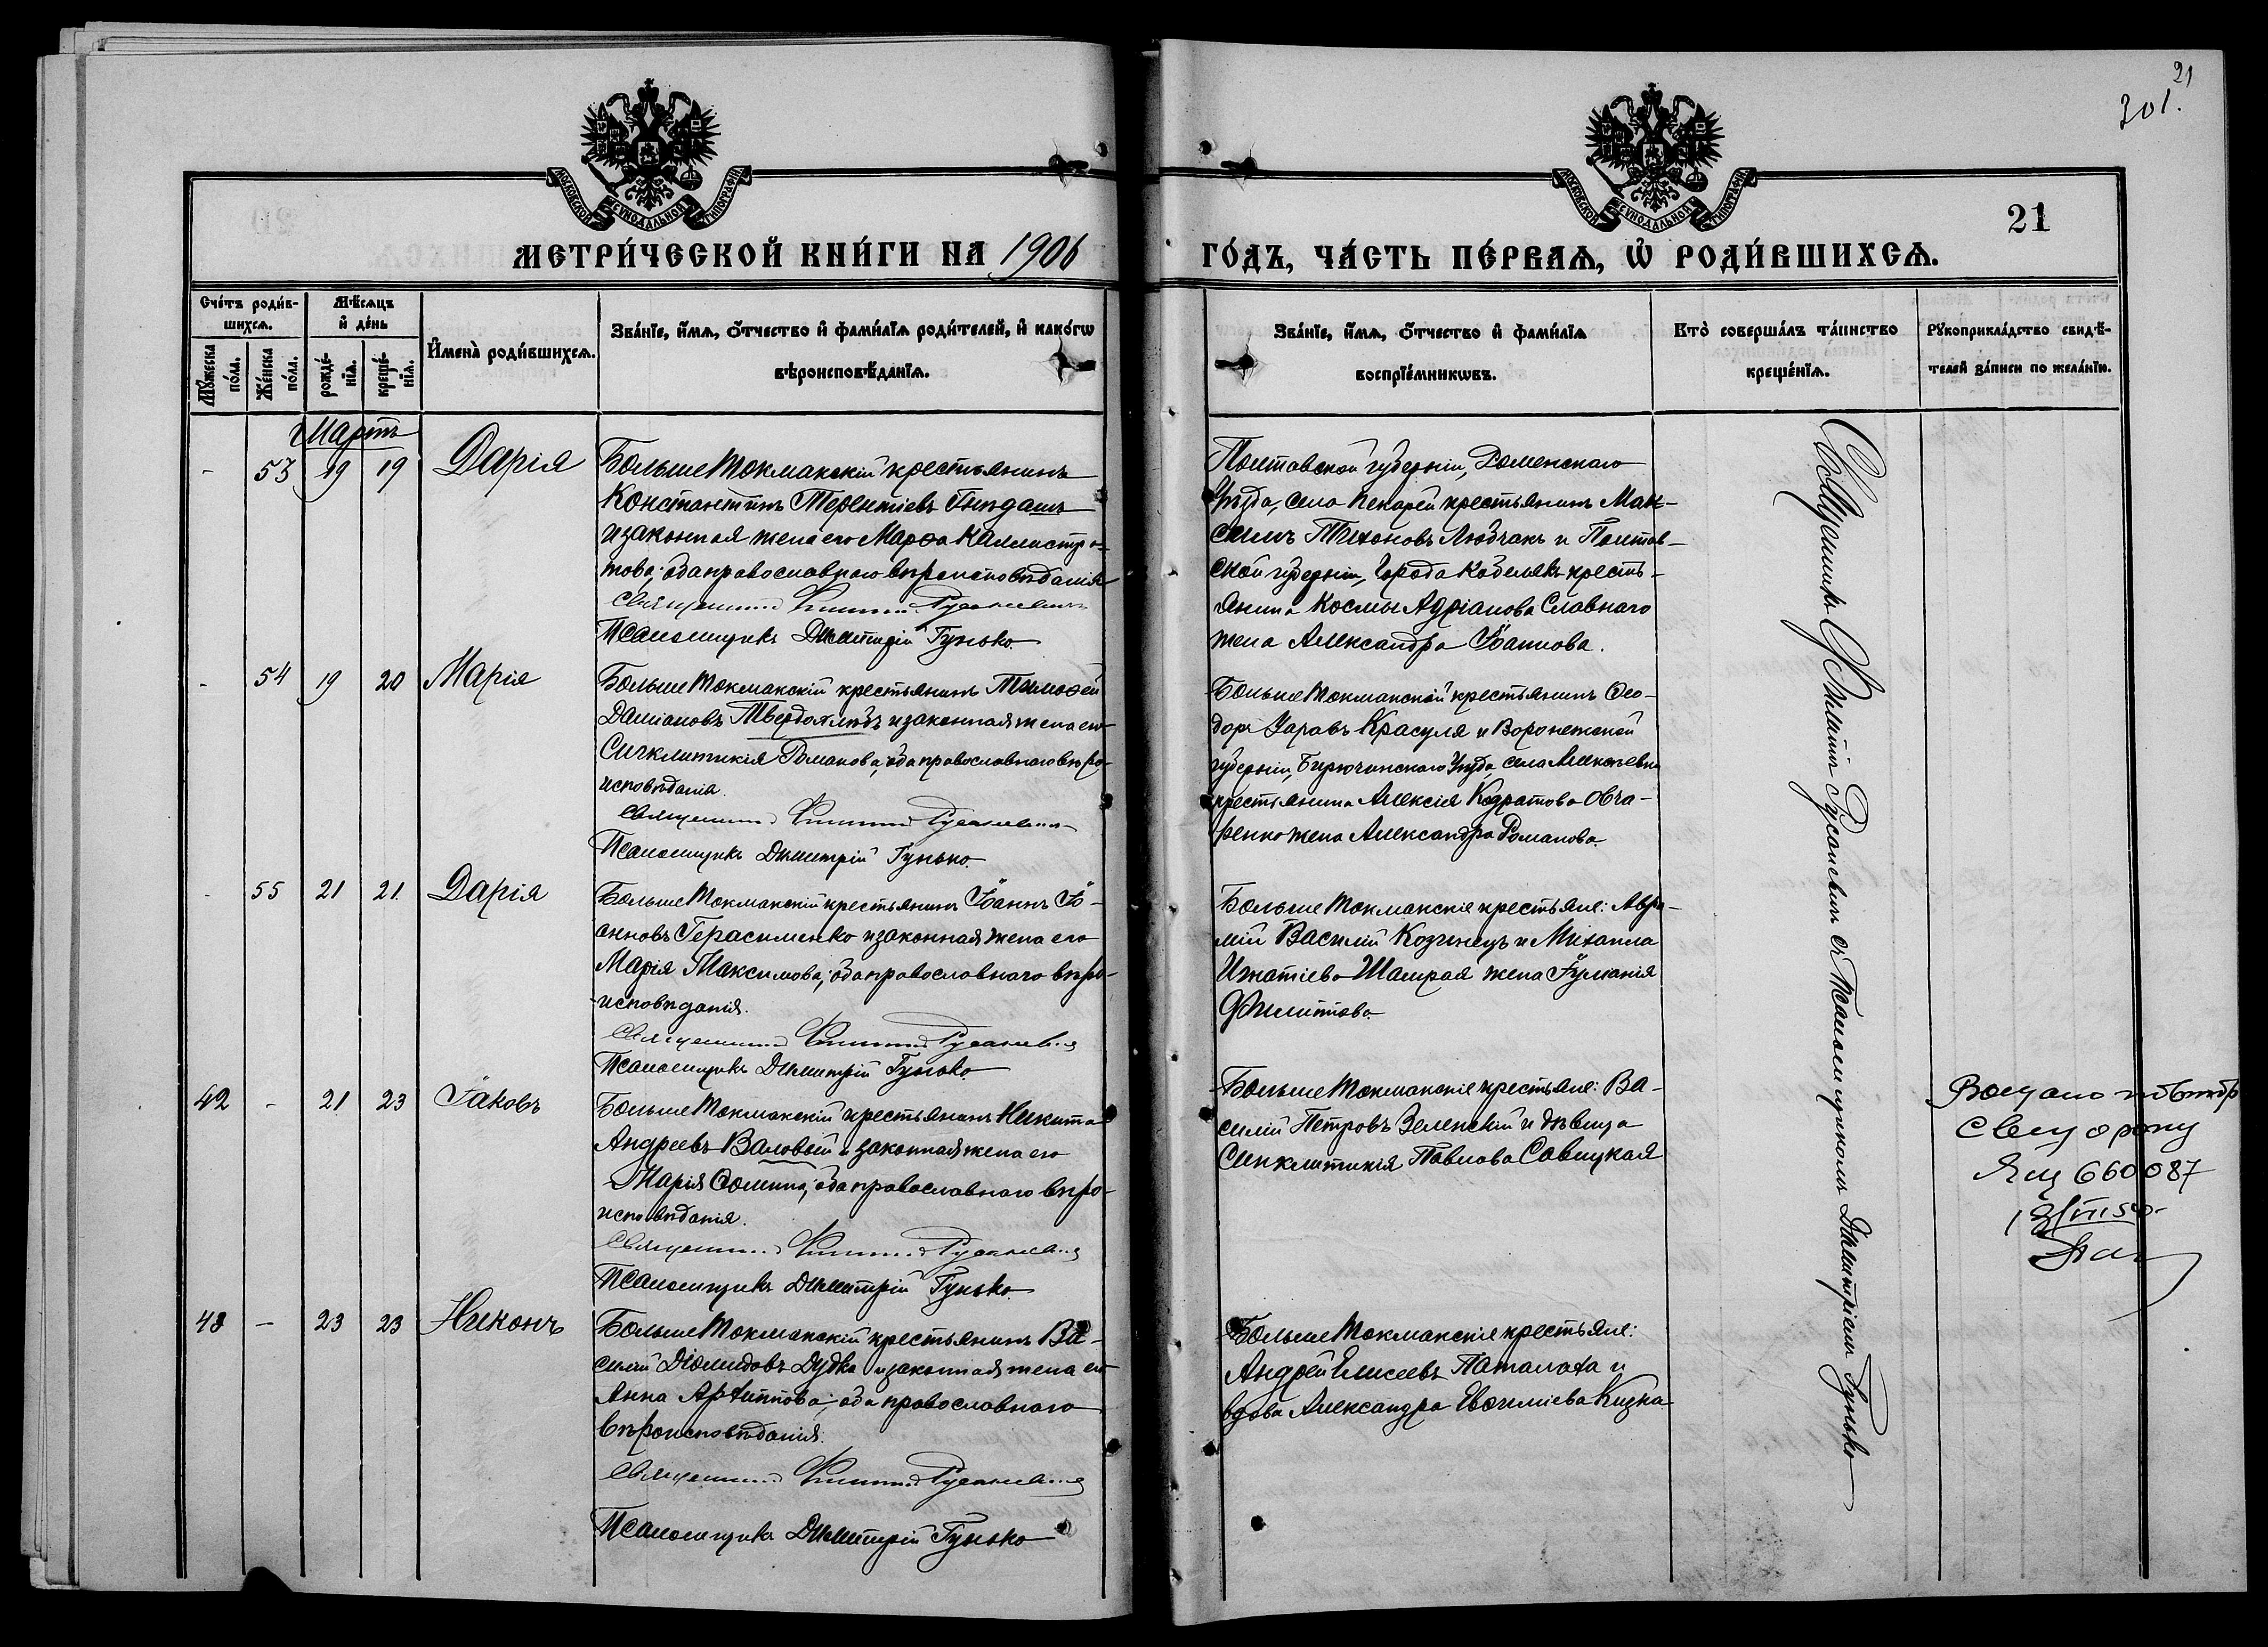 21
301.
МОСКОВСКОЙ СѴНОДАЛЬНОЙ ТИПОГРАФІИ
МОСКОВСКОЙ СѴНОДАЛЬНОЙ ТИПОГРАФІИ
21
МЕТРИ́ЧЕСКОЙ КНИ́ГИ НА 1906
ГО́ДЪ, ЧА́СТЬ ПЕ́РВАѦ, Ѡ҆ РОДИ́ВШИХСѦ.
Сче́тъ роди́в-
шихсѧ.
Мѣ́сѧцъ
и҆ де́нь
Му́жеска по́ла.
Же́нска по́ла.
рожде́-нїѧ.
креще́-нїѧ.
И҆мена̀ роди́вшихсѧ.
Зва́нїе, и҆́мѧ, ѻ҆́тчество и҆ фами́лїѧ роди́телей, и҆ како́гѡ
вѣроисповѣ́данїѧ.
Зва́нїе, и҆́мѧ, ѻ҆́тчество и҆ фами́лїѧ
воспрїе́мникѡвъ.
Кто̀ соверша́лъ та́инство
креще́нїѧ.
Рꙋкоприкла́дство свидѣ́-
телей за́писи по жела́нїю.
Мартъ
- 53 19 19 Дарія
Больше Токмакскій крестьянинъ
Константинъ Терентіевъ Гнѣдашъ
и законная жена его Марѳа Каллистра-
това; оба православнаго вѣроисповѣданія
Священникъ Филиппъ Русаневичъ
Псаломщикъ Димитрій Гунько.
Полтавской губерніи, Роменскаго
Уѣзда, села Пекарей крестьянинъ Мак-
симъ Тихоновъ Любчакъ и Полтав-
ской губерніи, Города Кобелякъ кресть-
янина Космы Адріанова Славнаго
жена Александра Іоаннова.
- 54 19 20 Марія
Больше Токмакскій крестьянинъ Тимоѳей
Даміановъ Твердохлѣбъ и законная жена его
Синклитикія Романова, оба православнаго вѣро-
исповѣданія.
Священникъ Филиппъ Русаневичъ
Псаломщикъ Димитрій Гунько.
Больше Токмакскій крестьянинъ Ѳео-
доръ Уаровъ Красуля и Воронежской
губерніи, Бирюченскаго Уѣзда, села Алексѣевки
крестьянина Алексія Кодратова Овча-
ренко жена Александра Романова.
- 55 21 21. Дарія
Больше Токмакскій крестьянинъ Іоаннъ Іо-
анновъ Герасименко и законная жена его
Марія Максимова; оба православнаго вѣро-
исповѣданія.
Священникъ Филиппъ Русаневичъ
Псаломщикъ Димитрій Гунько.
Больше Токмакскіе крестьяне:
Василій и Михаила
Игнатіева Шамрая жена Іуліанія
Филиппова.
42 - 21 23 Іаковъ
Больше Токмакскій крестьянинъ Никита
Андреевъ Валовый и законная жена его
Марія Ѳомина; оба православнаго вѣро-
исповѣданія.
Священникъ Филиппъ Русаневичъ
Псаломщикъ Димитрій Гунько.
Больше Токмакскіе крестьяне: Ва-
силій Петровъ Зеленскій и дѣвица
Синклитикія Павлова Савицкая
660087
48 - 23 23 Никонъ
Больше Токмакскій крестьянинъ Ва-
силій Діомидовъ Дудка и законная жена его
Анна Архиппова; оба православнаго
вѣроисповѣданія.
Священникъ Филиппъ Русаневичъ
Псаломщикъ Димитрій Гунько
Больше Токмакскіе крестьяне:
Андрей Елисеевъ Паталаха и
вдова Александра Евѳиміева
Священникъ Филиппъ Русаневичъ съ Псаломщикомъ Димитріемъ Гунько